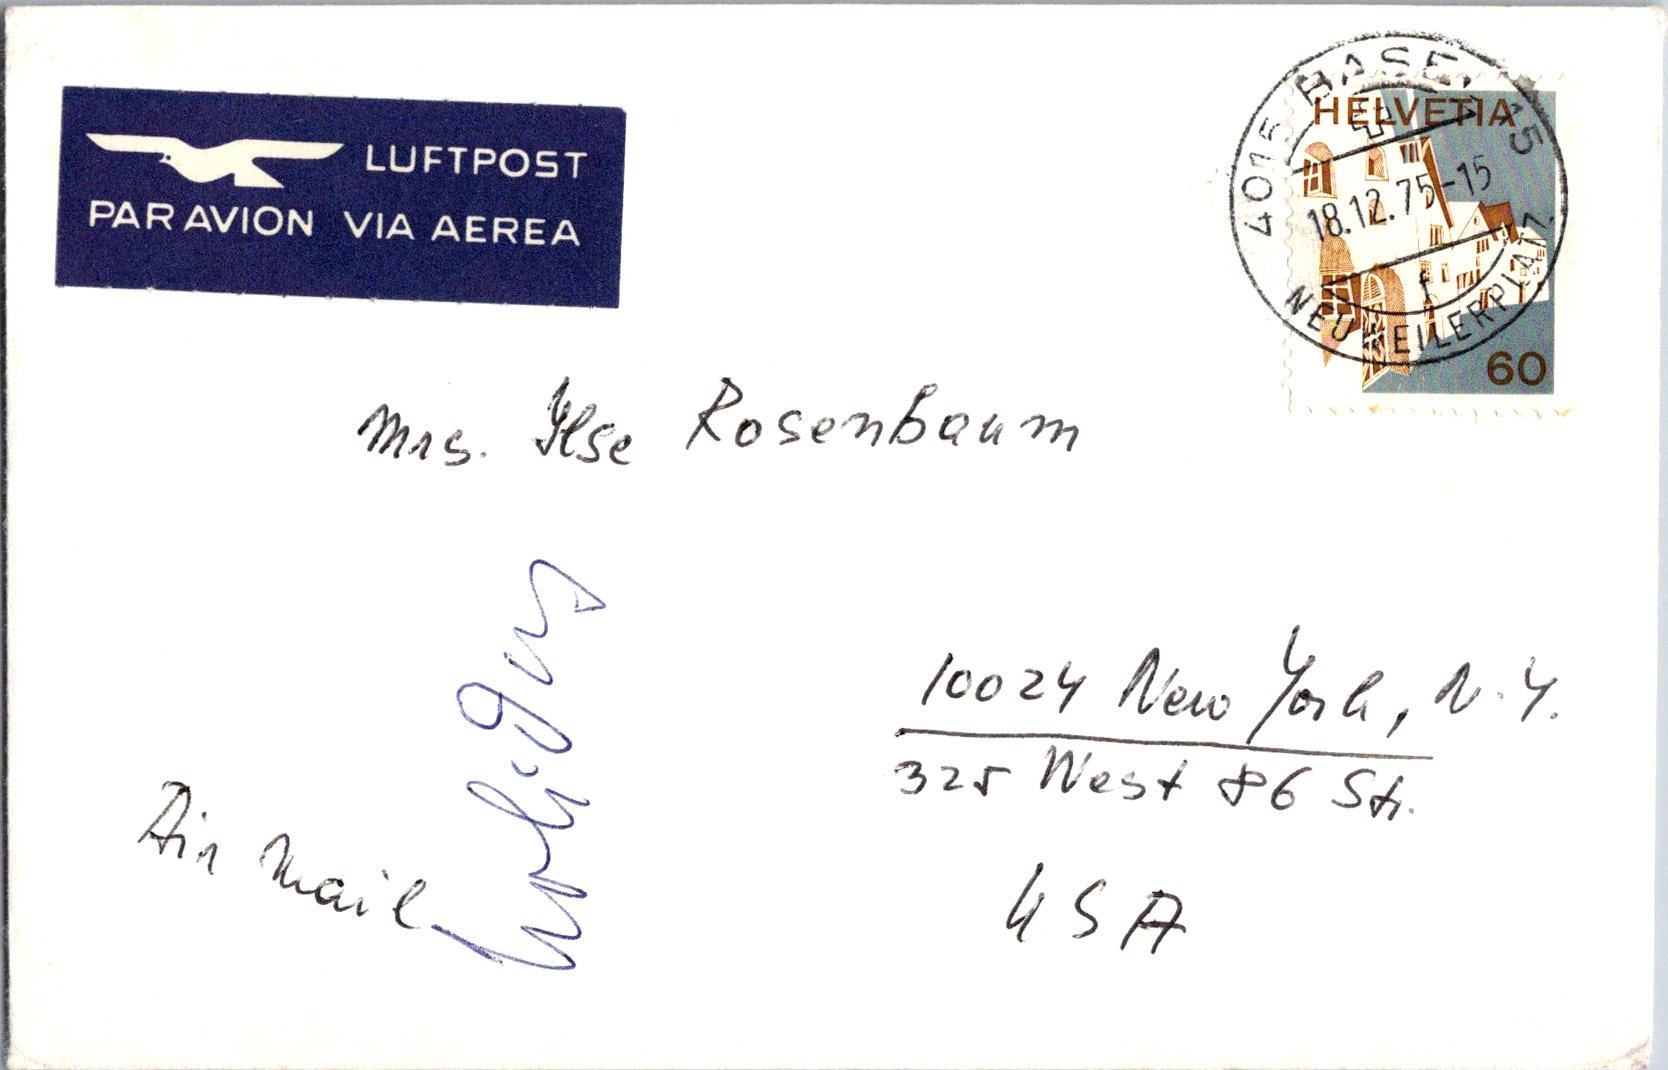 LUFTPOST
PAR AVION VIA AEREA
4015 BASEL 15
HELVETIA
18.12.75-15
NEUWEILERPLATZ
60
Mrs. Ilse Rosenbaum
10024 New York, N.Y.
325 West 86 Str.
USA
Air Mail